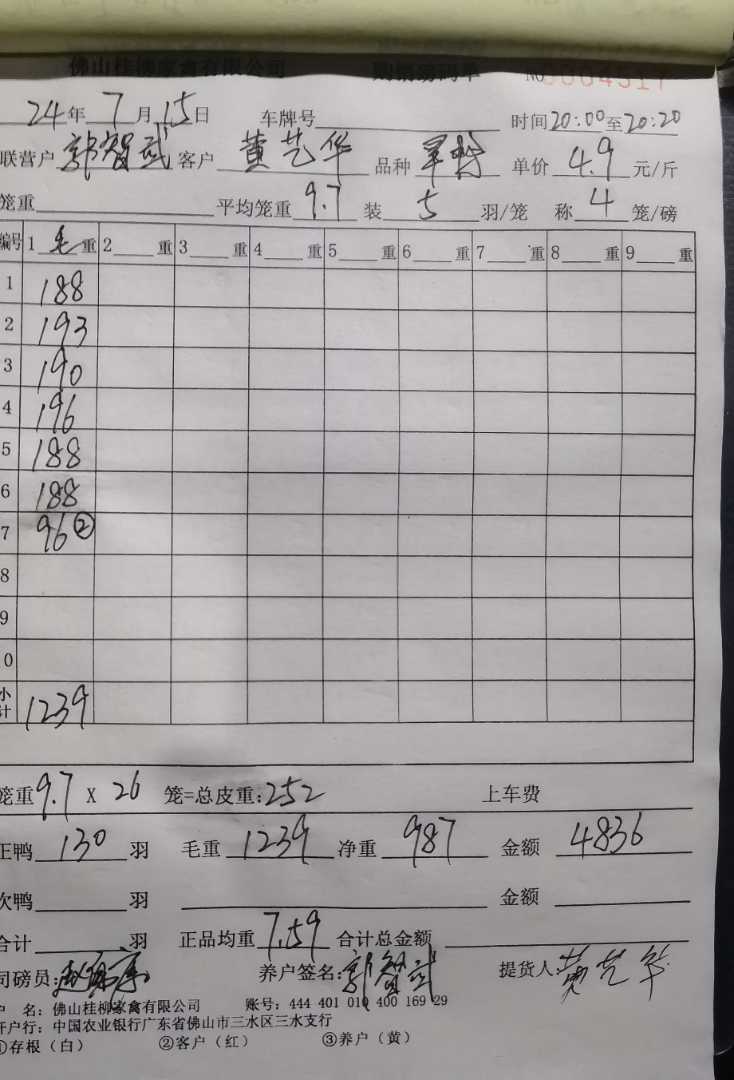 佛山桂柳家禽有限公司 购销磅码单 NO 0004517
24年7月15日 车牌号 时间20:00至20:20
联营户 郭智武 客户 黄艺华 品种 单价 4.9 元/斤
笼重 平均笼重 9.7 装 5 羽/笼 称 4 笼/磅
编号 1 毛 重 2 重 3 重 4 重 5 重 6 重 7 重 8 重 9 重
1 188
2 193
3 190
4 196
5 188
6 188
7 96②
8
9
0
小计 1239
笼重 9.7 X 26 笼=总皮重:252 上车费
正鸭 130 羽 毛重 1239 净重 987 金额 4836
次鸭 羽 金额
合计 羽 正品均重 7.59 合计总金额
司磅员: 养户签名:郭智武 提货人:黄艺华
户 名:佛山桂柳家禽有限公司 账号:444 401 010 400 169 29
开户行:中国农业银行广东省佛山市三水区三水支行
①存根(白) ②客户(红) ③养户(黄)